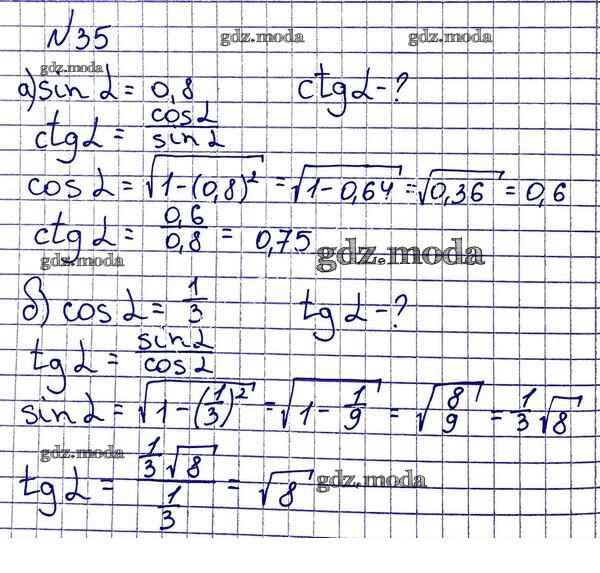 №35 gdz.moda gdz.moda
gdz.moda
а) sin α = 0,8 ctg α - ?
ctg α = cos α / sin α
cos α = √(1-(0,8)²) = √(1-0,64) = √(0,36) = 0,6
ctg α = 0,6 / 0,8 = 0,75 gdz.moda
gdz.moda
б) cos α = 1/3 tg α - ?
tg α = sin α / cos α
sin α = √(1-(1/3)²) = √(1-1/9) = √(8/9) = 1/3 √8
gdz.moda
tg α = (1/3 √8) / (1/3) = √8 gdz.moda